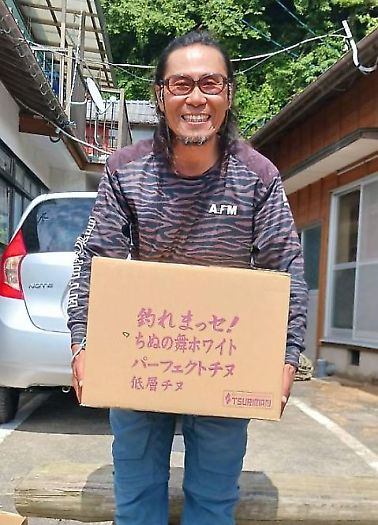 NOTE
A.FM
釣れまっセ！
ちぬの舞ホワイト
パーフェクトチヌ
低層チヌ
TSURIMAN